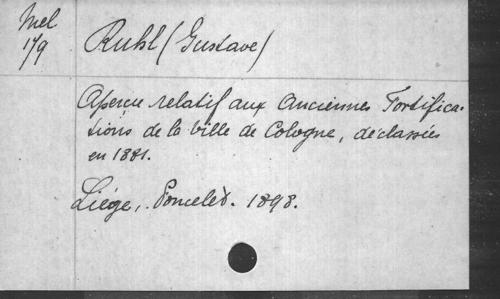 Mel
179
Ruhl (Gustave)
Aperçu relatif aux Anciennes Fortifica-
tions de la ville de Cologne, déclassées
en 1881.
Liége, Poncelet. 1898.